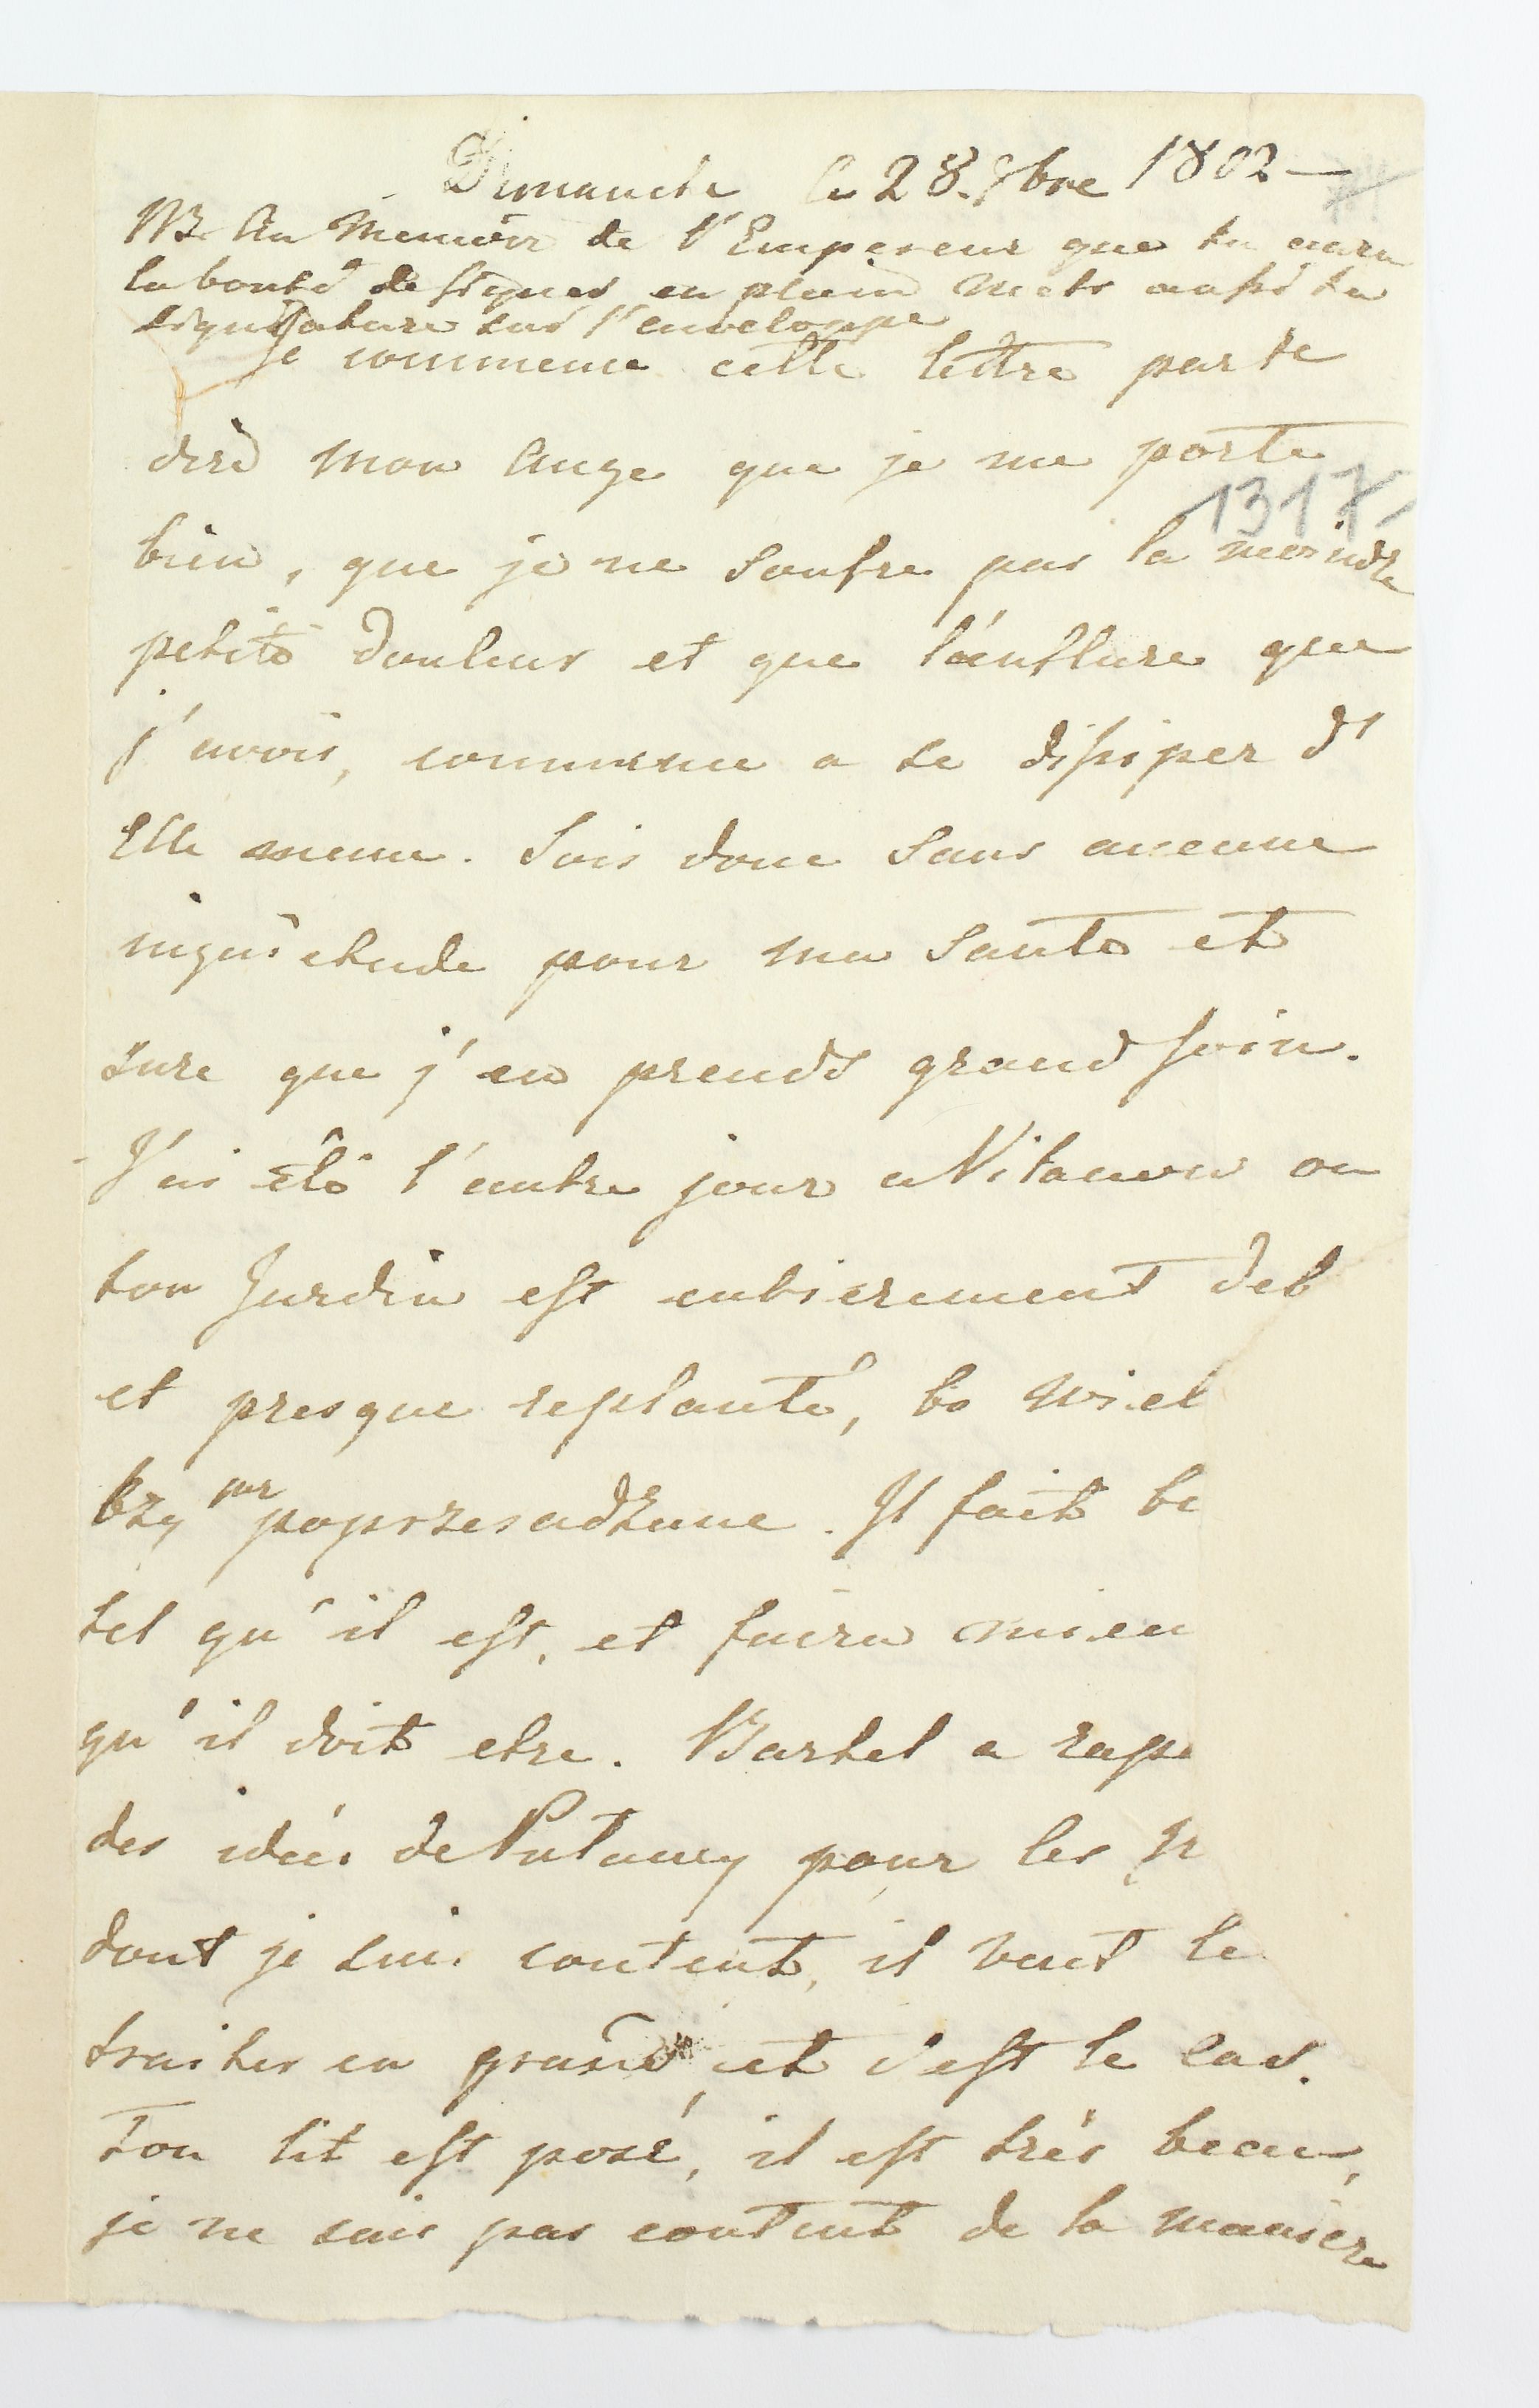 Dimanche le 28. 9bre 1802 —
NB. Au Memoire de l'Empereur que tu aura
la bonté de signer en plein mets aussi ta
signature sur l'enveloppe
Je commence cette lettre par te
dire mon Ange que je me porte
1317
bien, que je ne soufre pas la moindre
petite douleur et que l'enflure que
j'avois, commence a se dissiper d'
Elle meme. Sois donc sans aucune
inquietude pour ma santé et
sure que j'en prends grand soin.
J'ai été l'autre jour a Vilanow ou
ton Jardin est entierement deb
et presque replanté, bo wiel
bzy popszesadzane. Il fait be
tel qu'il est, et faira mieu
qu'il doit etre. Bartel a rapo
des idées de Pulawy pour les
dont je suis content, il veut le
traiter en grand, et c'est le cas.
Ton lit est posé, il est très beau,
je ne suis pas content de la maniere